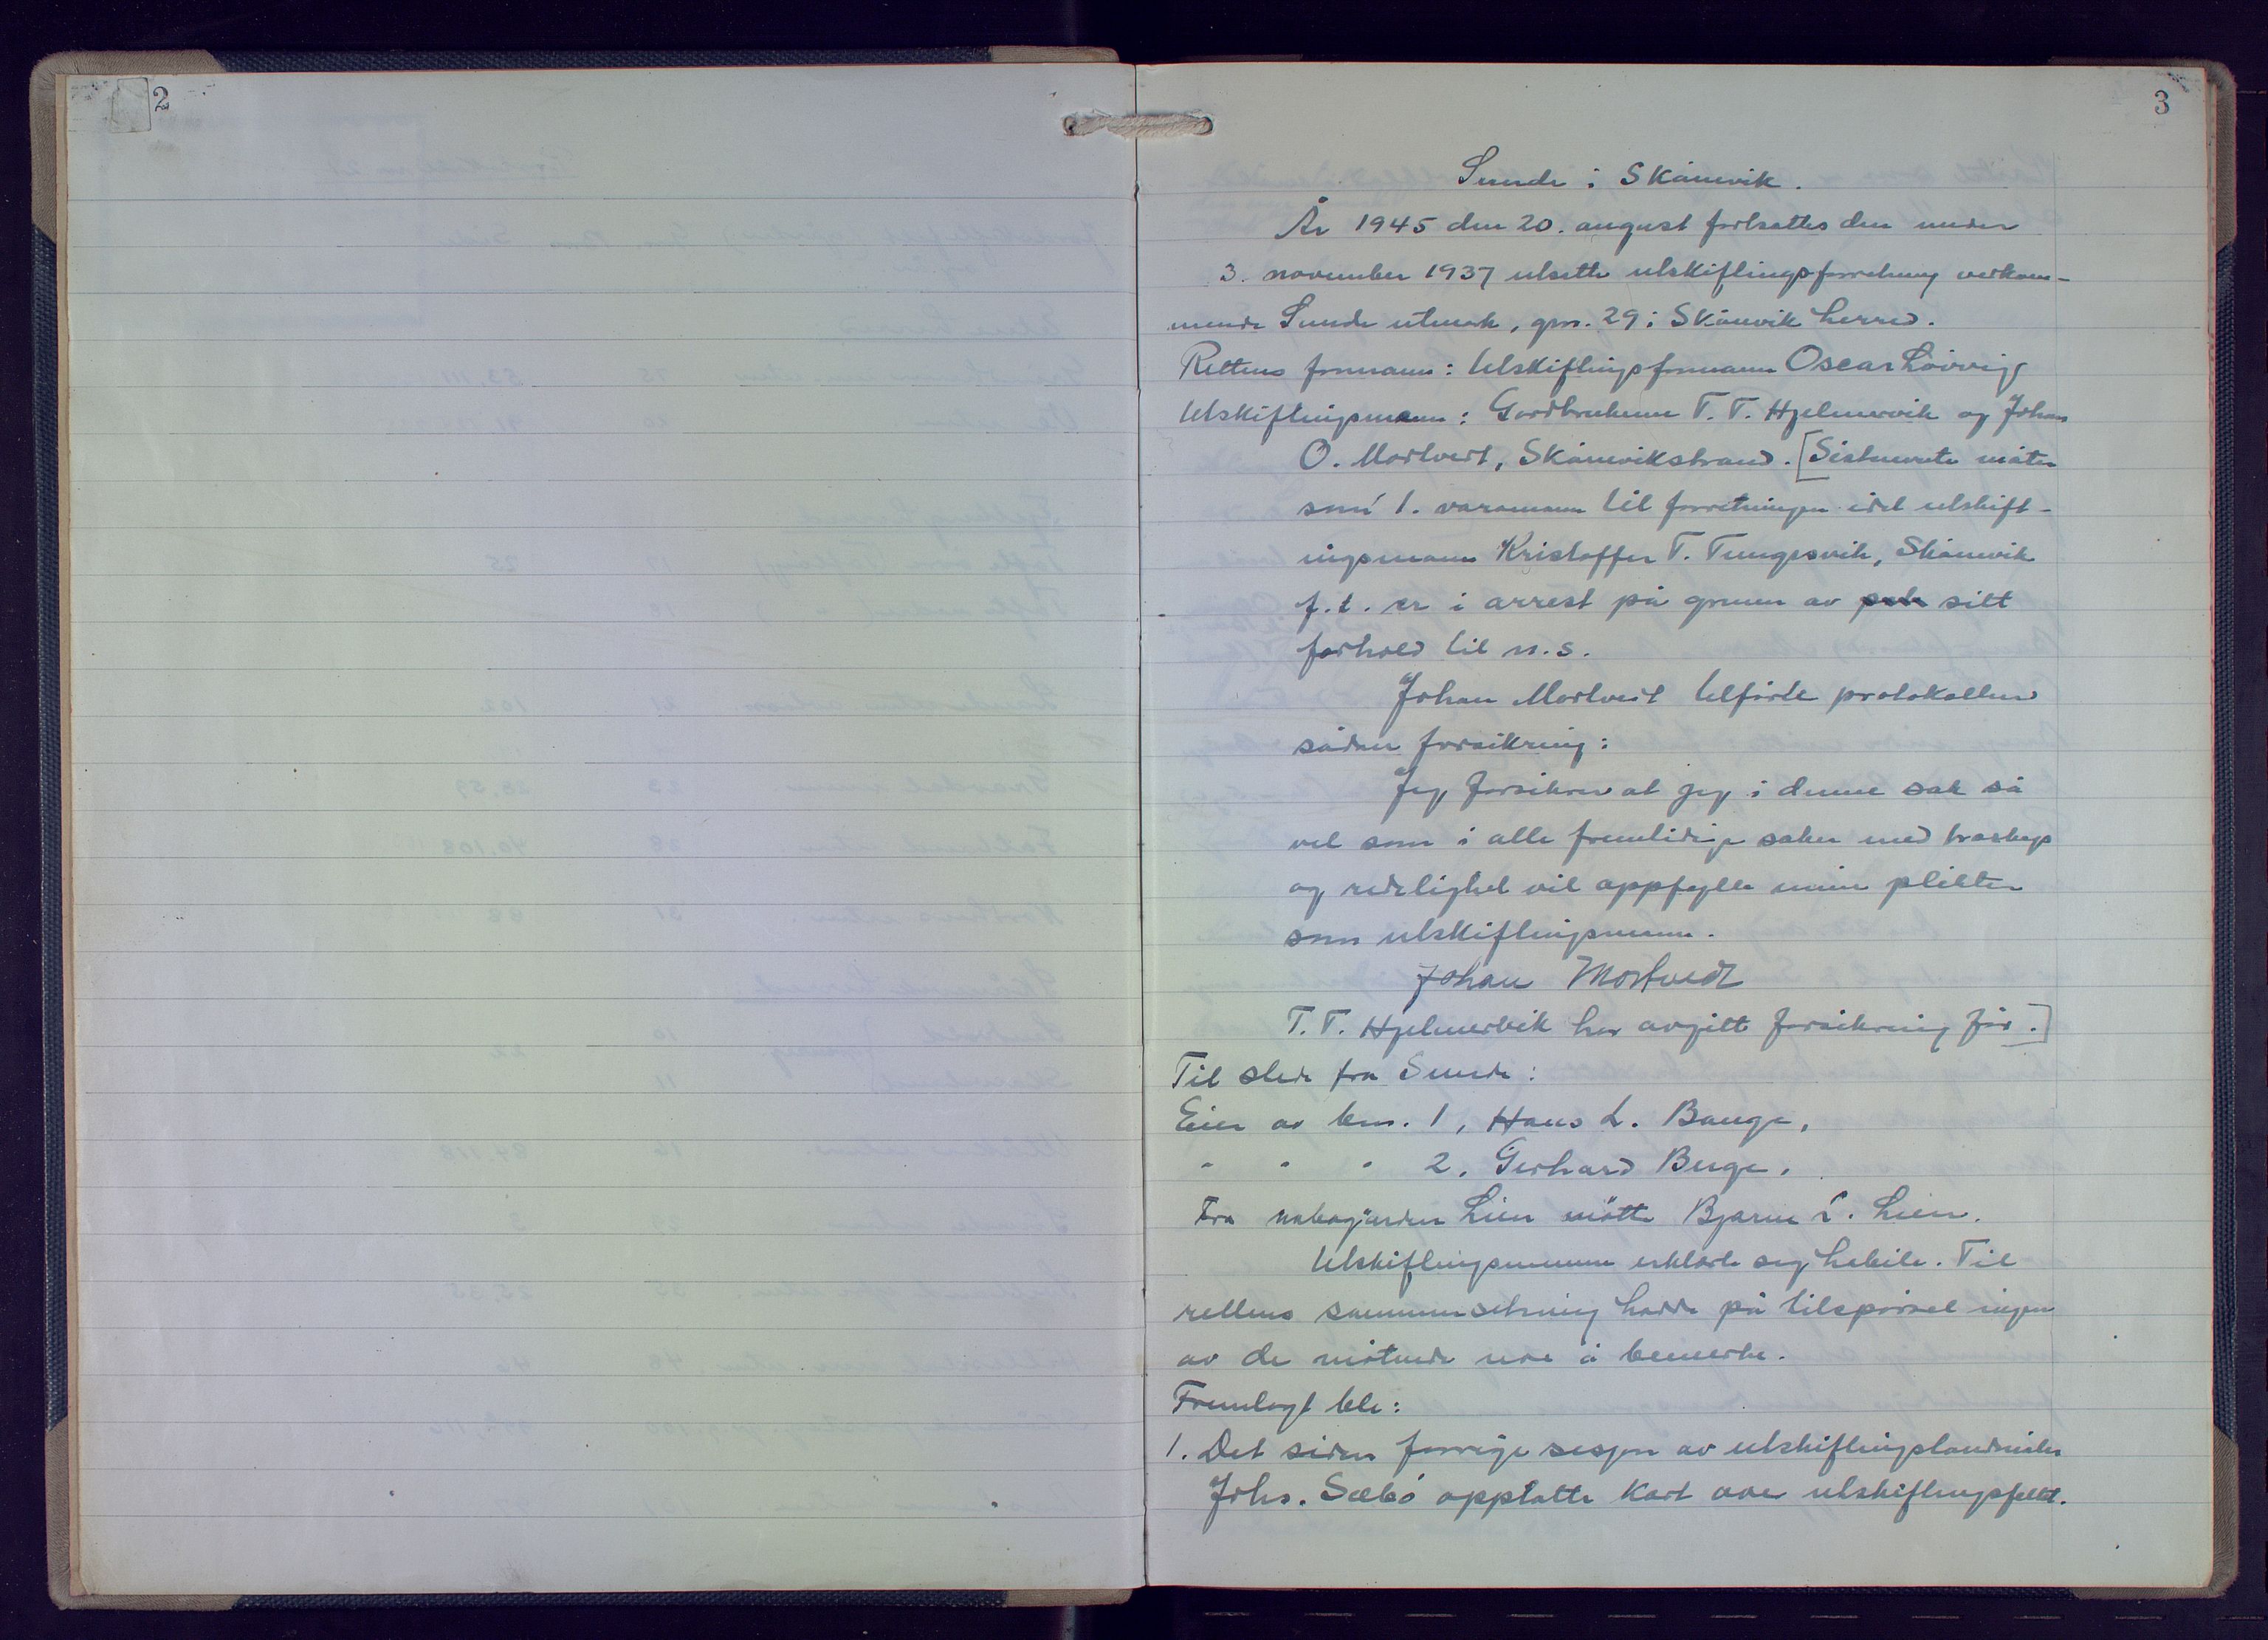 2
3
Sunde i Skånevik.
År 1945 den 20. august fortsattes den under
3. november 1937 utsatte utskiftingsforretning vedkom-
mende Sunde utmark, gnr. 29 i Skånevik herred.
Rettens formann: Utskiftingsformann Oscar Lövvig
Utskiftingsmenn: Gardbrukerne T. T. Hjelmervik og Johan
O. Mortveit, Skånevikstrand. [Sistnevnte möter
som 1. varamann til forretningen idet utskift-
ingsmann Kristoffer T. Tungesvik, Skånevik
f.t. er i arrest på grunn av sitt
forhold til n.s.
Johan Mortveit tilförte protokollen
sådan forsikring:
Jeg forsikrer at jeg i denne sak så
vel som i alle fremtidige saker med troskap
og redelighet vil oppfylle mine plikter
som utskiftingsmann.
Johan Mortvedt
T. T. Hjelmervik har avgitt forsikring för.]
Til stede fra Sunde:
Eier av bnr. 1, Hans L. Bauge,
" " " 2, Gerhard Berge.
Fra nabogården Lien mötte Bjarne L. Lien.
Utskiftingsmennene erklærte seg habile. Til
rettens sammensetning hadde på tilspörsel ingen
av de mötende noe å bemerke.
Fremlagt ble:
1. Det siden forrige sesjon av utskiftingslandmåler
Johs. Sæbö opptatte kart over utskiftingsfeltet.